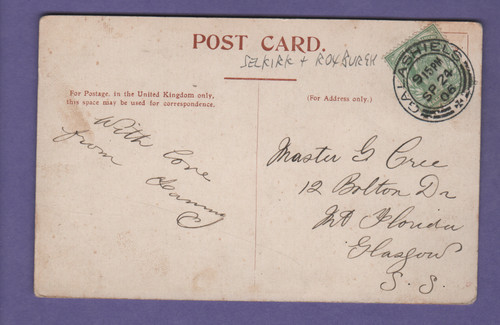 POST CARD.
SELKIRK + ROXBURGH
For Postage, in the United Kingdom only,
this space may be used for correspondence.
(For Address only.)
GALASHIELS
9 15 PM
SP 24
06
With love
from
Master G Cree
12 Bolton Dr
Mt Florida
Glasgow
S. S.